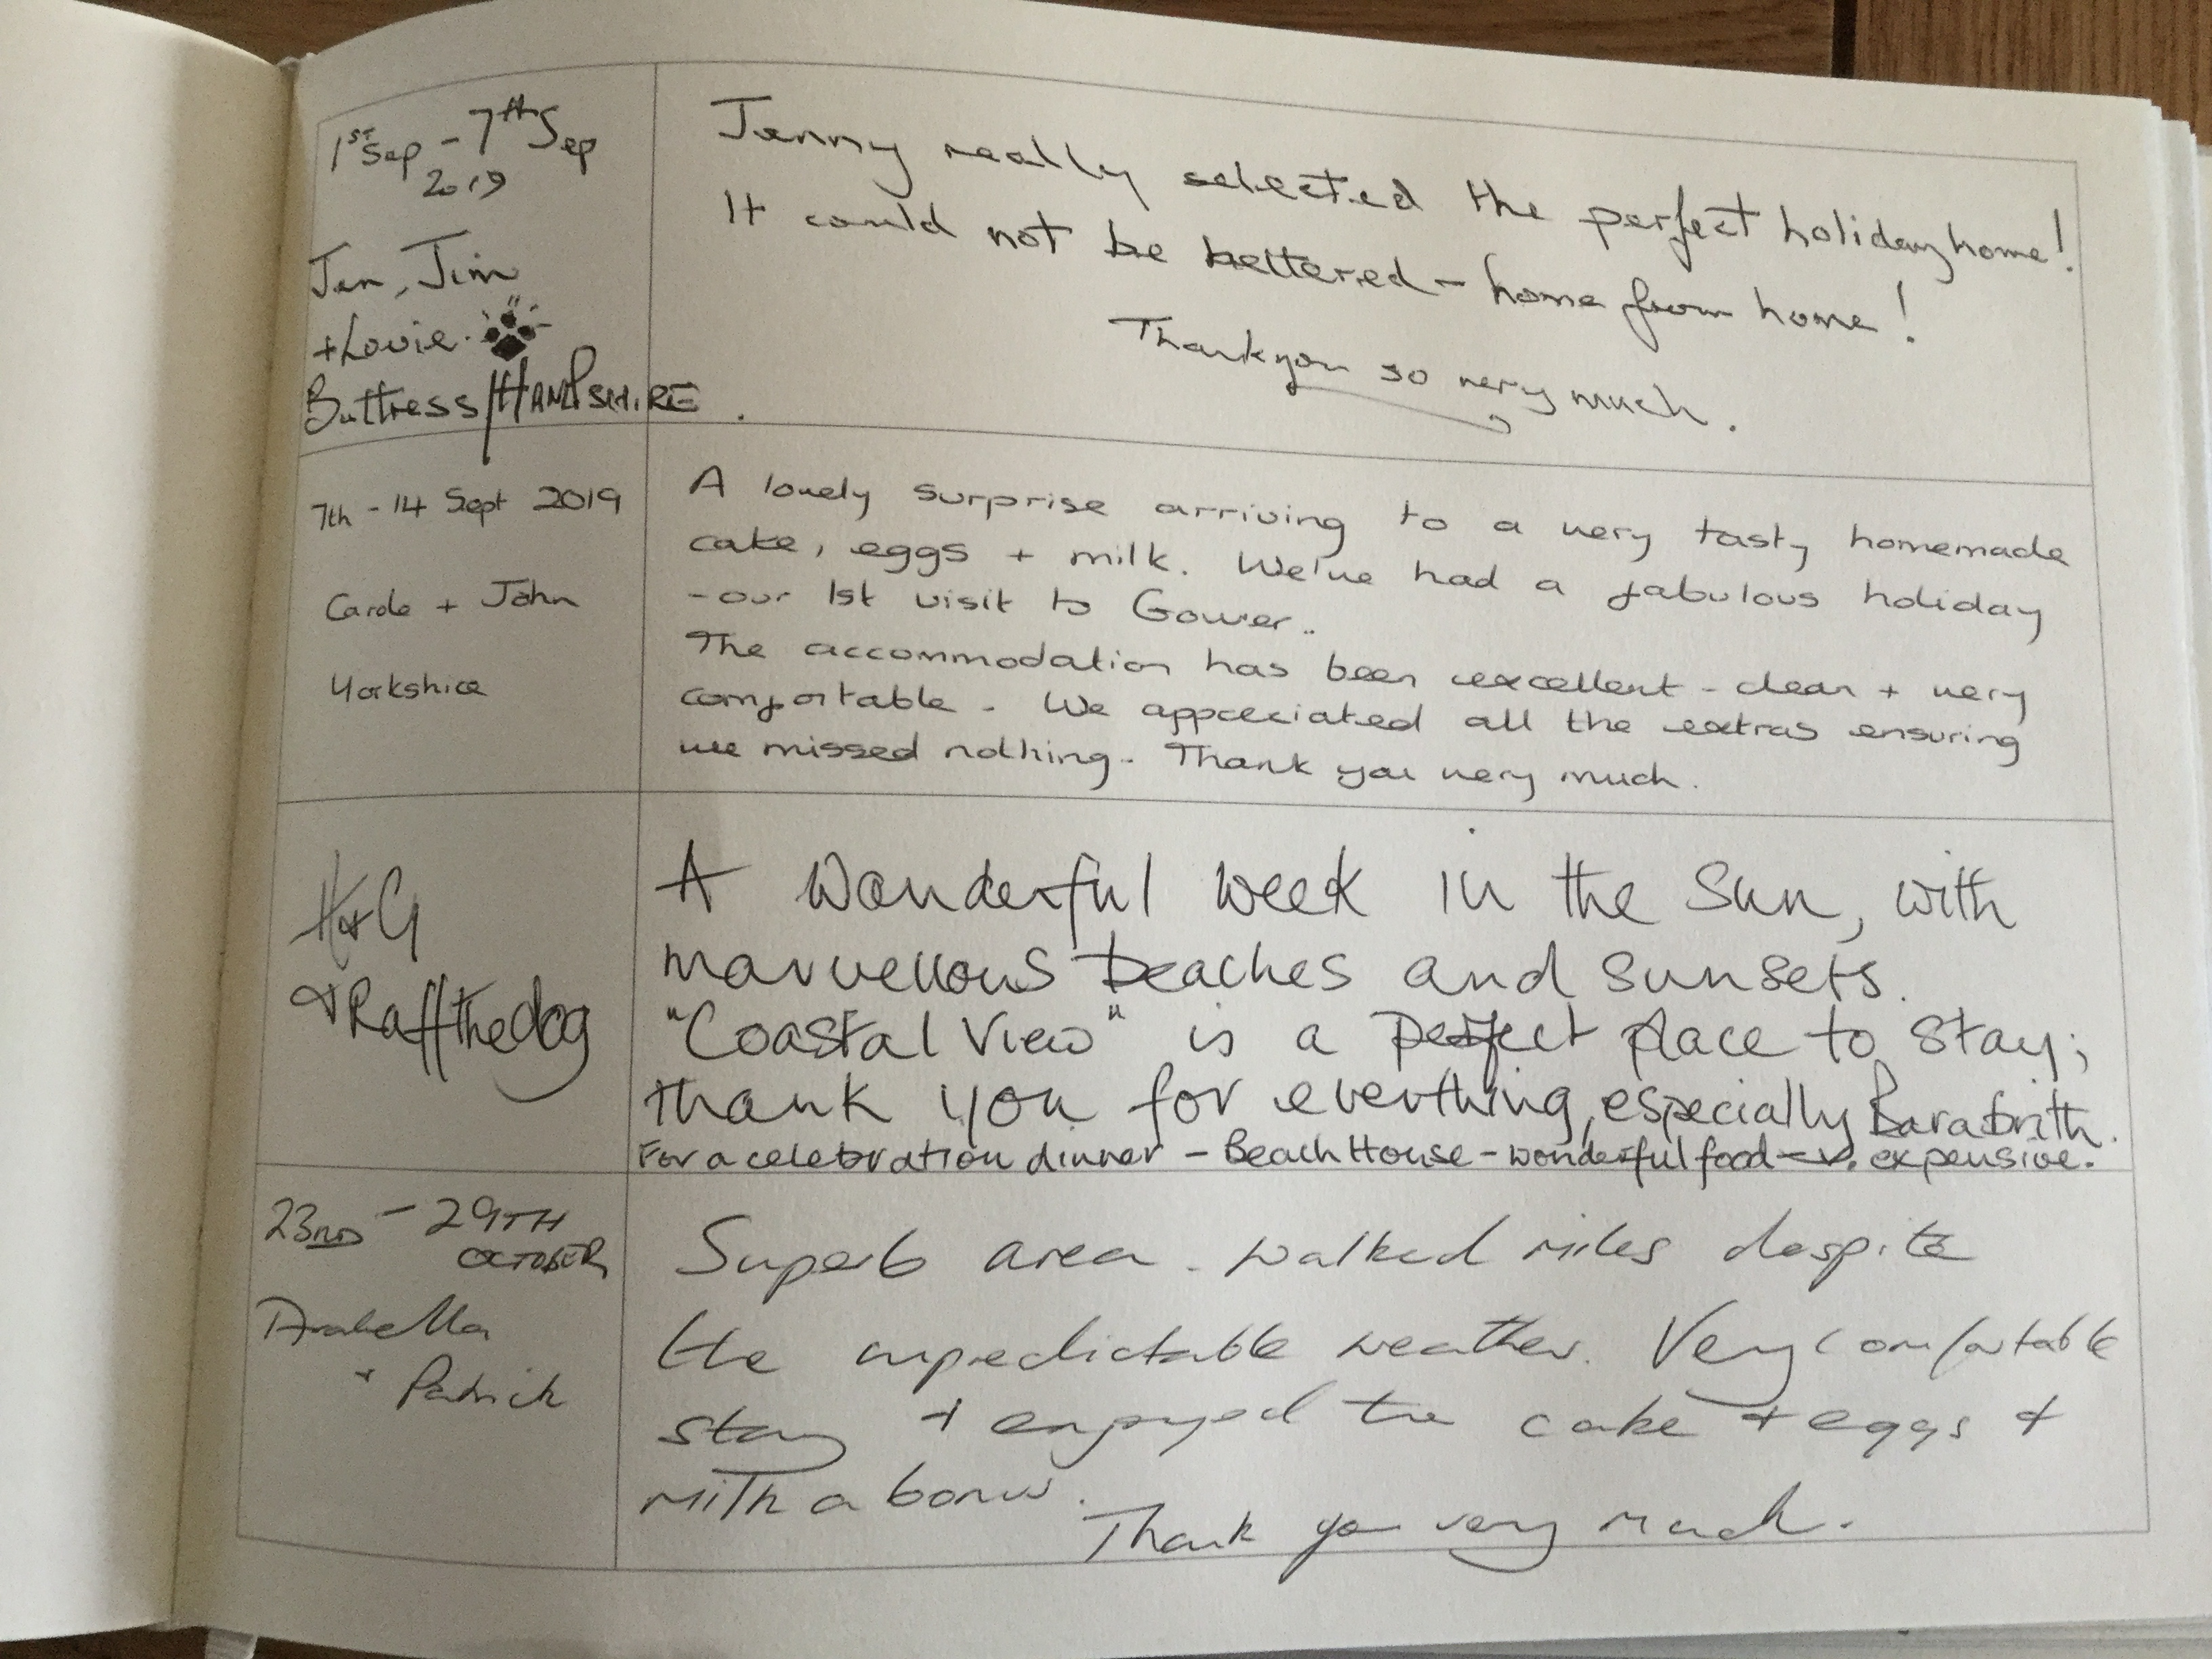 1st Sep - 7th Sep
2019
Jen, Jim
+ Louie.
Buttress/HAMPSHIRE.
Jenny really selected the perfect holiday home!
It could not be bettered - home from home!
Thank you so very much.
7th - 14 Sept 2019
Carole + John
Yorkshire
A lovely surprise arriving to a very tasty homemade
cake, eggs + milk. We've had a fabulous holiday
- our 1st visit to Gower..
The accommodation has been excellent - clean + very
comfortable. We appreciated all the extras ensuring
we missed nothing. Thank you very much.
H+G
+ Raff the dog
A wonderful week in the sun, with
marvellous beaches and sunsets.
"Coastal View" is a perfect place to stay;
thank you for everthing, especially Bara brith.
For a celebration dinner - Beach House - wonderful food - v. expensive.
23RD - 29TH
OCTOBER
Arabella
+ Patrick
Superb area. Walked miles despite
the unpredictable weather. Very comfortable
stay + enjoyed the cake + eggs +
milk a bonus.
Thank you very much.